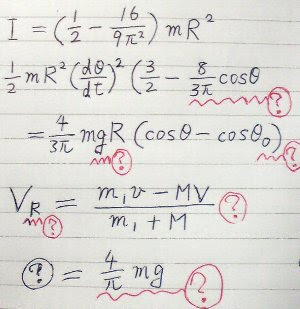 I = (1/2 - 16/9π²) mR²
1/2 mR² (dθ/dt)² (3/2 - 8/3π cosθ
?
= 4/3π mgR (cosθ - cosθ₀)
? ?
V_R = m₁v - MV / m₁ + M ?
?
? = 4/π mg ?